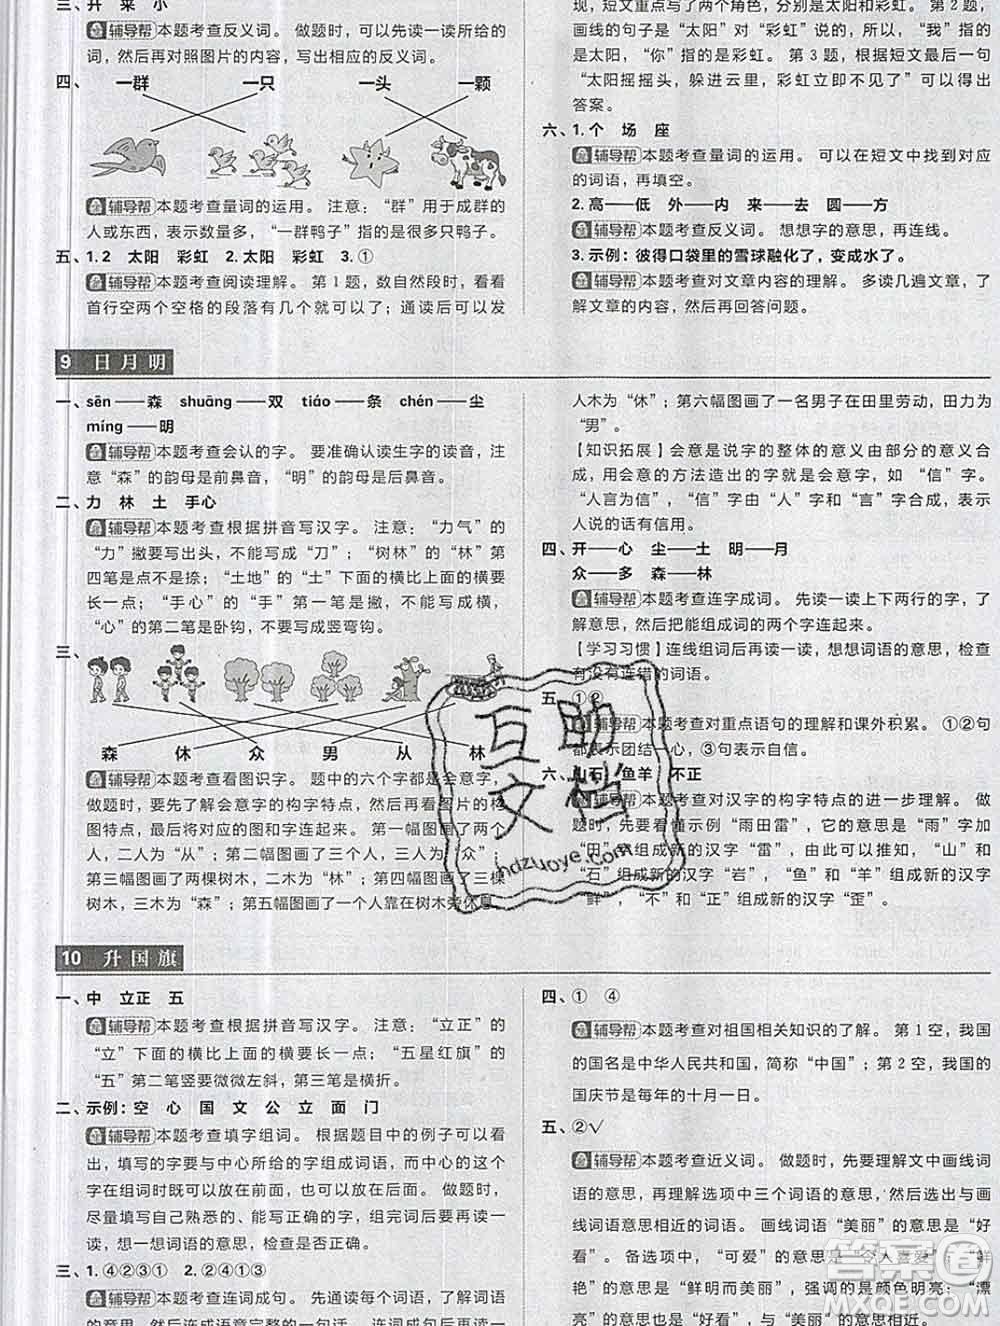 三、升 来 小
辅导帮 本题考查反义词。做题时,可以先读一读给的
词,然后再对照图片的内容,写出相应的反义词。
四、一群 一只 一头 一颗
辅导帮 本题考查量词的运用。注意:“群”用于成群的
人或东西,表示数量多,“一群鸭子”指的是很多只鸭子。
五、1.2 太阳 彩虹 2.太阳 彩虹 3.①
辅导帮 本题考查阅读理解。第1题,数自然段时,看看
首行空两个空格的段落有几个就可以了;通读后可以发
现,短文重点写了两个角色,分别是太阳和彩虹。第2题,
画线的句子是“太阳”对“彩虹”说的,所以,“我”指的
是太阳,“你”指的是彩虹。第3题,根据短文最后一句
“太阳摇摇头,躲进云里,彩虹立即不见了”可以得出
答案。
六、1.个 场 座
辅导帮 本题考查量词的运用。可以在短文中找到对应
的词语,再填空。
2.高——低 外——内 来——去 圆——方
辅导帮 本题考查反义词。想想字的意思,再连线。
3.示例:彼得口袋里的雪球融化了,变成水了。
辅导帮 本题考查对文章内容的理解。多读几遍文章,了
解文章的内容,然后再回答问题。
9 日月明
一、sēn——森 shuāng——双 tiáo——条 chén——尘
míng——明
辅导帮 本题考查会认的字。要准确认读生字的读音,注
意“森”的韵母是前鼻音,“明”的韵母是后鼻音。
二、力 林 土 手心
辅导帮 本题考查根据拼音写汉字。注意:“力气”的
“力”撇要写出头,不能写成“刀”;“树林”的“林”第
四笔是点不是捺;“土地”的“土”下面的横比上面的横
要长一点;“手心”的“手”第一笔是撇,不能写成横,
“心”的第二笔是卧钩,不要写成竖弯钩。
三、
森 休 众 男 从 林
辅导帮 本题考查看图识字。题中的六个字都是会意字,
做题时,要先了解会意字的构字特点,然后再看图片的构
图特点,最后将对应的图和字连起来。第一幅图画了两个
人,二人为“从”;第二幅图画了三个人,三人为“众”;
第三幅图画了两棵树木,二木为“林”;第四幅图画了三棵
树木,三木为“森”;第五幅图画了一个人靠在树木旁休息,
人木为“休”;第六幅图画了一名男子在田里劳动,田力为
“男”。
【知识拓展】会意是说字的整体的意义由部分的意义合
成,用会意的方法造出的字就是会意字,如“信”字。
“人言为信”,“信”字由“人”字和“言”字合成,表示
人说的话有信用。
四、开——心 尘——土 明——月
众——多 森——林
辅导帮 本题考查连字成词。先读一读上下两行的字,了
解意思,然后把能组成词的两个字连起来。
【学习习惯】连线组词后再读一读,想想词语的意思,检查
有没有连错的词语。
五、①②
辅导帮 本题考查对重点语句的理解和课外积累。①②句
都表示团结一心,③句表示自信。
六、山石 鱼羊 不正
辅导帮 本题考查对汉字的构字特点的进一步理解。做
题时,先要看懂示例“雨田雷”,它的意思是“雨”字加
“田”组成新的汉字“雷”,由此可以推知,“山”和
“石”组成新的汉字“岩”,“鱼”和“羊”组成新的汉字
“鲜”,“不”和“正”组成新的汉字“歪”。
10 升国旗
一、中 立正 五
辅导帮 本题考查根据拼音写汉字。注意:“立正”的
“立”下面的横比上面的横要长一点;“五星红旗”的
“五”第二笔竖要微微左斜,第三笔是横折。
二、示例:空 心 国 文 公 立 面 门
辅导帮 本题考查填字组词。根据题目中的例子可以看
出,填写的字要与中心所给的字组成词语,而中心的这个
字在组词时既可以放在前面,也可以放在后面。做题时,
尽量填写自己熟悉的、能写正确的字,组完词后要再读一
读,想一想词语的意思,检查是否正确。
三、1.④②③① 2.④①②③
辅导帮 本题考查连词成句。先通读每个词语,了解词语
的意思,然后连成语意完整的一句话。注意句子开头和
四、① ④
辅导帮 本题考查对祖国相关知识的了解。第1空,我国
的国名是中华人民共和国,简称“中国”;第2空,我国的
国庆节是每年的十月一日。
五、②√
辅导帮 本题考查近义词。做题时,先要理解文中画线词
语的意思,再理解选项中三个词语的意思,然后选出与画
线词语意思相近的词语。画线词语“美丽”的意思是“好
看”。备选项中,“可爱”的意思是“令人喜爱”;“鲜
艳”的意思是“鲜明而美丽”,强调的是颜色明亮;“漂
亮”的意思是“好看”,与“美丽”的意思相近。
互助
文档
hdzuoye.com
答案圈
MXQE.COM